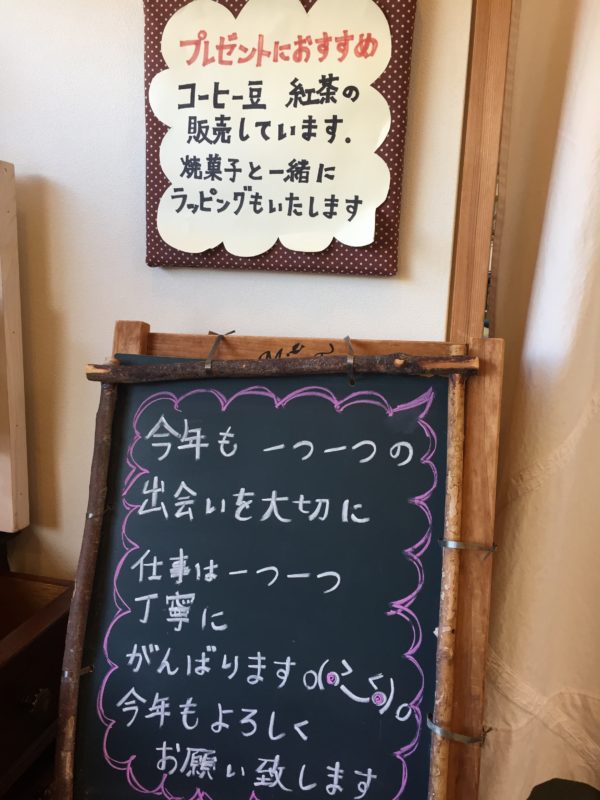 プレゼントにおすすめ
コーヒー豆 紅茶の
販売しています.
焼菓子と一緒に
ラッピングもいたします
今年も 一つ一つの
出会いを大切に
仕事は一つ一つ
丁寧に
がんばります
今年もよろしく
お願い致します